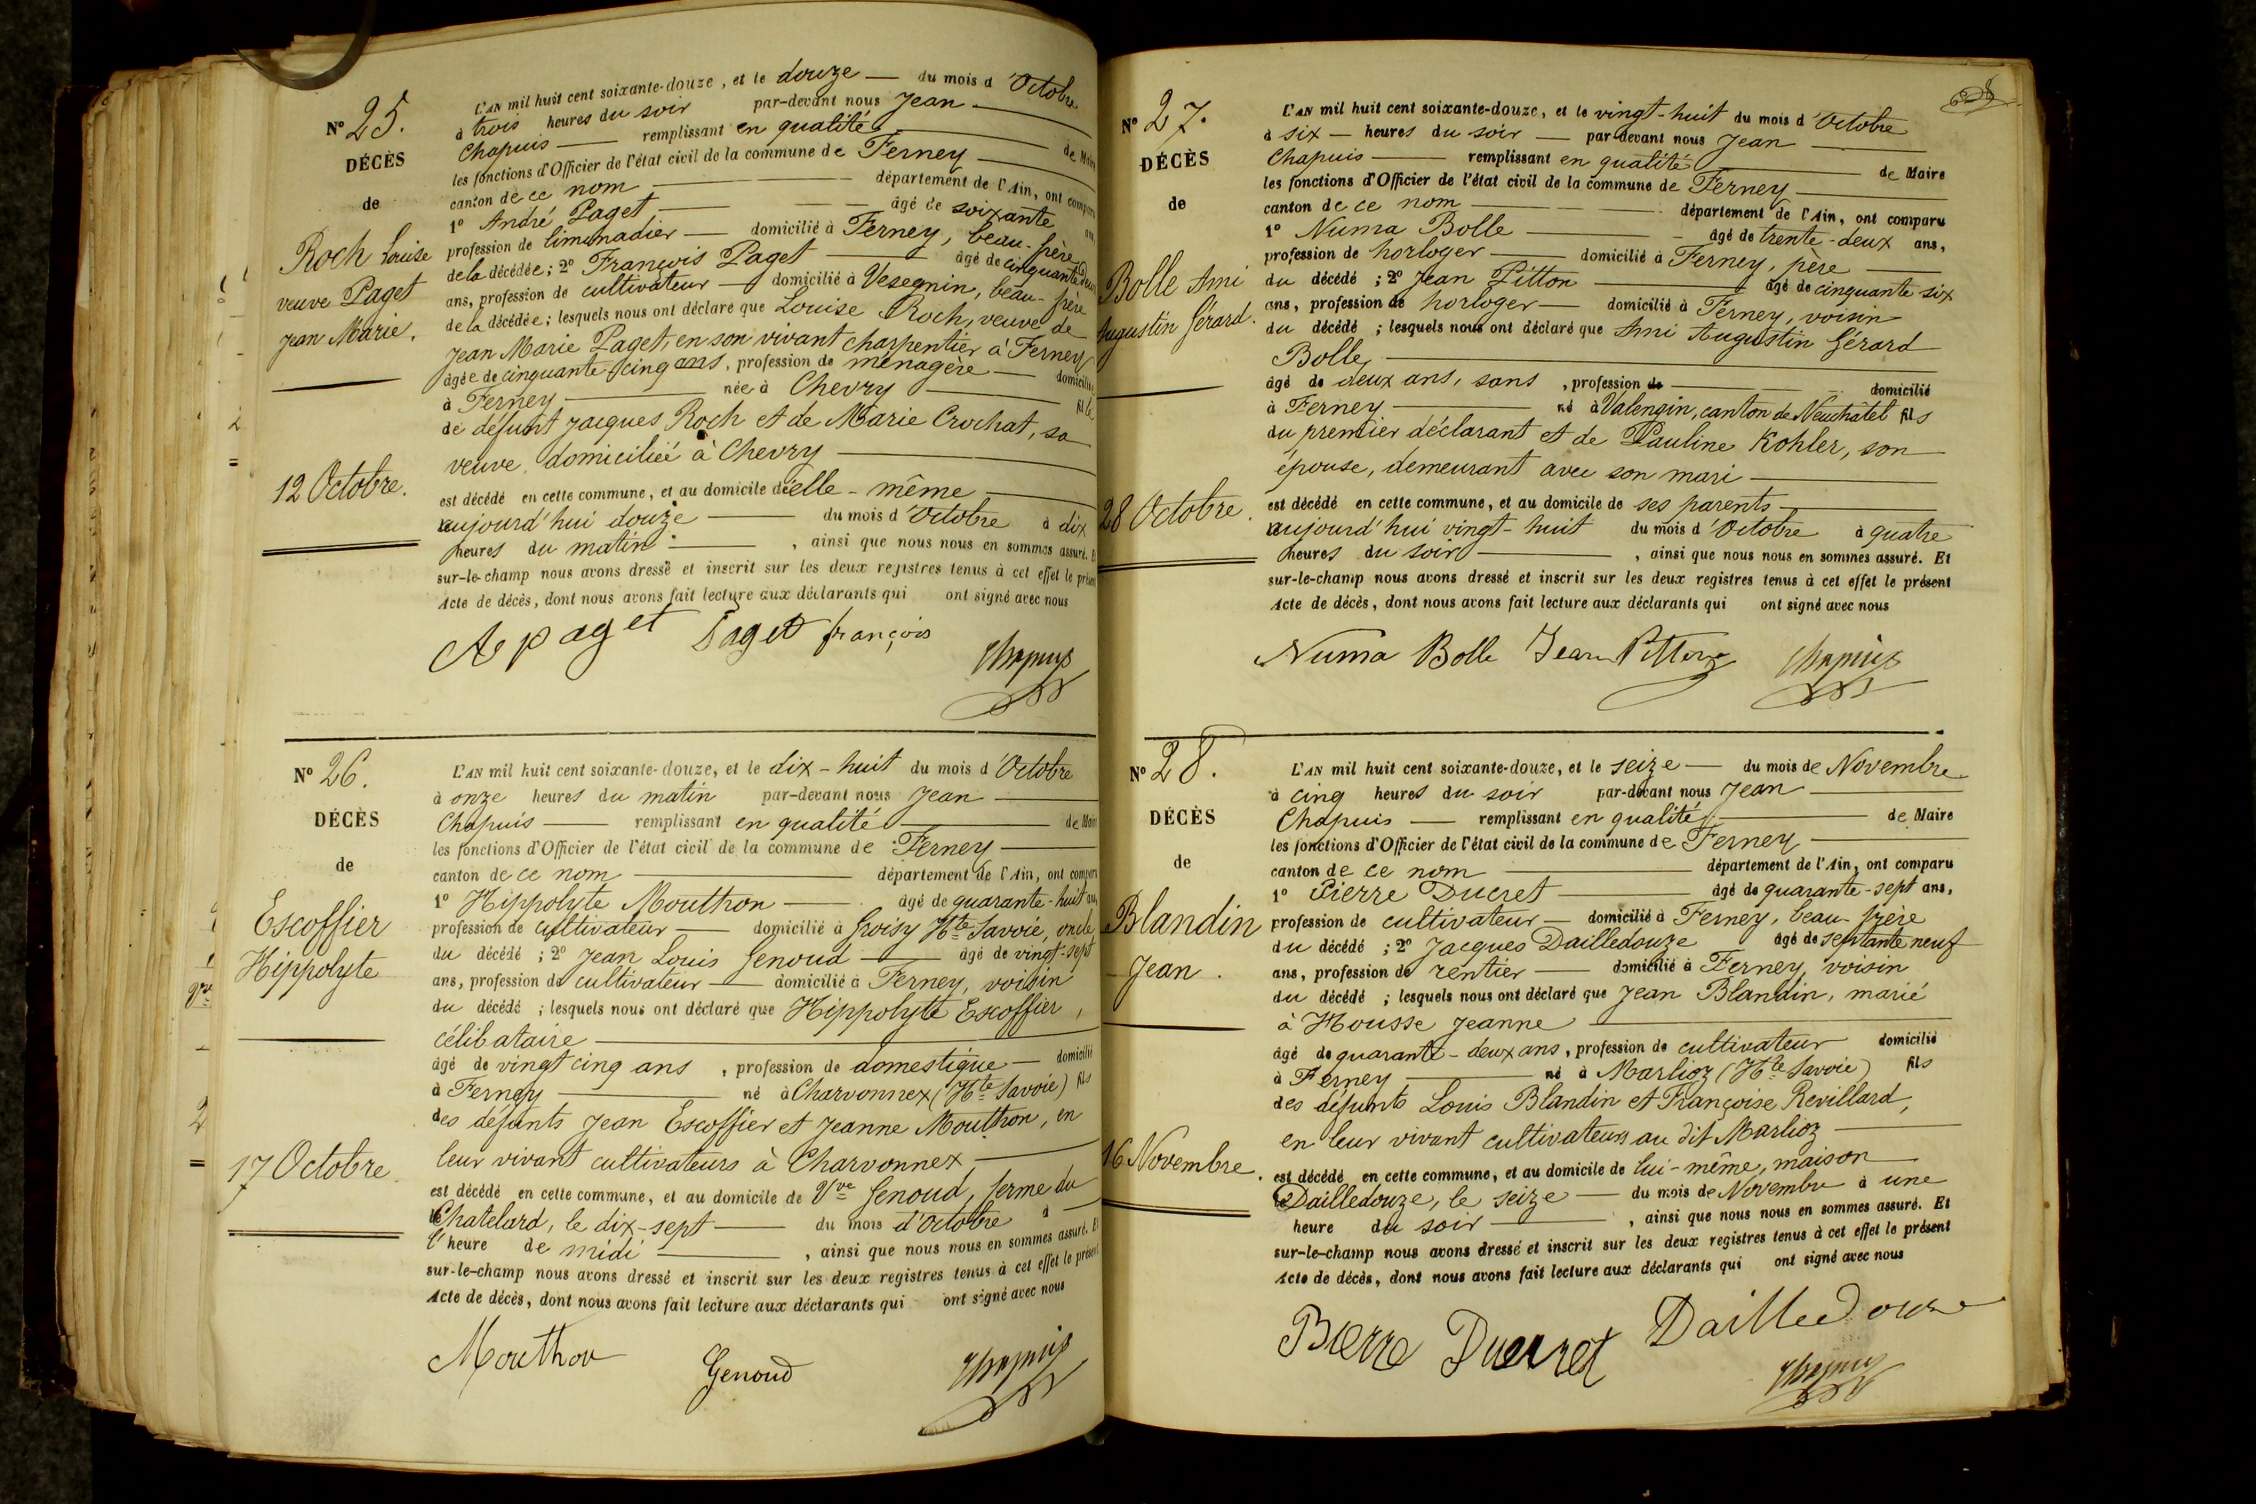 N° 25.
DÉCÈS
de
Roch Louise
veuve Paget
Jean Marie.
12 Octobre.
L'AN mil huit cent soixante-douze, et le douze — du mois d'Octobre
à trois heures du soir par-devant nous Jean —
Chapuis — remplissant en qualité — de Maire
les fonctions d'Officier de l'état civil de la commune de Ferney —
canton de ce nom — département de l'Ain, ont comparu
1° André Paget — âgé de soixante ans,
profession de limonadier — domicilié à Ferney, beau-frère
de la décédée ; 2° François Paget — âgé de cinquante deux
ans, profession de cultivateur — domicilié à Vesegnin, beau-frère
de la décédée ; lesquels nous ont déclaré que Louise Roch, veuve de
Jean Marie Paget, en son vivant charpentier à Ferney
âgée de cinquante-cinq ans, profession de ménagère — domiciliée
à Ferney — née à Chevry — fille
de défunt Jacques Roch et de Marie Crochat, sa
veuve domiciliée à Chevry —
est décédé en cette commune, et au domicile d'elle-même —
aujourd'hui douze — du mois d'Octobre à dix
heures du matin — , ainsi que nous nous en sommes assuré. Et
sur-le-champ nous avons dressé et inscrit sur les deux registres tenus à cet effet le présent
Acte de décès, dont nous avons fait lecture aux déclarants qui ont signé avec nous
A paget Paget françois
Chapuis
N° 26.
DÉCÈS
de
Escoffier
Hippolyte
17 Octobre.
L'AN mil huit cent soixante-douze, et le dix-huit du mois d'Octobre
à onze heures du matin par-devant nous Jean —
Chapuis — remplissant en qualité — de Maire
les fonctions d'Officier de l'état civil de la commune de Ferney —
canton de ce nom — département de l'Ain, ont comparu
1° Hippolyte Mouthon — âgé de quarante-huit ans,
profession de cultivateur — domicilié à Groisy Hte Savoie, oncle
du décédé ; 2° Jean Louis Genoud — âgé de vingt-sept
ans, profession de cultivateur — domicilié à Ferney, voisin
du décédé ; lesquels nous ont déclaré que Hippolyte Escoffier,
célibataire —
âgé de vingt cinq ans , profession de domestique — domicilié
à Ferney — né à Charvonnex (Hte Savoie) fils
des défunts Jean Escoffier et Jeanne Mouthon, en
leur vivant cultivateurs à Charvonnex —
est décédé en cette commune, et au domicile de Vve Genoud, ferme du
Chatelard, le dix-sept — du mois d'Octobre à —
l'heure de midi — , ainsi que nous nous en sommes assuré. Et
sur-le-champ nous avons dressé et inscrit sur les deux registres tenus à cet effet le présent
Acte de décès, dont nous avons fait lecture aux déclarants qui ont signé avec nous
Mouthon Genoud Chapuis
N° 27.
DÉCÈS
de
Bolle Ami
Augustin Gérard.
28 Octobre.
L'AN mil huit cent soixante-douze, et le vingt-huit du mois d'Octobre
à six — heures du soir — par-devant nous Jean —
Chapuis — remplissant en qualité — de Maire
les fonctions d'Officier de l'état civil de la commune de Ferney —
canton de ce nom — département de l'Ain, ont comparu
1° Numa Bolle — âgé de trente-deux ans,
profession de horloger — domicilié à Ferney, père —
du décédé ; 2° Jean Pitton — âgé de cinquante six
ans, profession de horloger — domicilié à Ferney, voisin
du décédé ; lesquels nous ont déclaré que Ami Augustin Gérard
Bolle, —
âgé de deux ans, sans , profession de — domicilié
à Ferney — né à Valengin, canton de Neuchâtel fils
du premier déclarant et de Pauline Kohler, son
épouse, demeurant avec son mari —
est décédé en cette commune, et au domicile de ses parents —
aujourd'hui vingt-huit du mois d'Octobre à quatre
heures du soir — , ainsi que nous nous en sommes assuré. Et
sur-le-champ nous avons dressé et inscrit sur les deux registres tenus à cet effet le présent
Acte de décès, dont nous avons fait lecture aux déclarants qui ont signé avec nous
Numa Bolle Jean Pitton Chapuis
N° 28.
DÉCÈS
de
Blandin
Jean.
16 Novembre.
L'AN mil huit cent soixante-douze, et le seize — du mois de Novembre
à cinq heures du soir par-devant nous Jean —
Chapuis — remplissant en qualité — de Maire
les fonctions d'Officier de l'état civil de la commune de Ferney —
canton de ce nom — département de l'Ain, ont comparu
1° Pierre Ducret — âgé de quarante-sept ans,
profession de cultivateur — domicilié à Ferney, beau-frère
du décédé ; 2° Jacques Dailledouze âgé de septante neuf
ans, profession de rentier — domicilié à Ferney, voisin
du décédé ; lesquels nous ont déclaré que Jean Blandin, marié
à Housse Jeanne —
âgé de quarante-deux ans, profession de cultivateur domicilié
à Ferney — né à Marlioz (Hte Savoie) fils
des défunts Louis Blandin et Françoise Revillard,
en leur vivant cultivateurs au dit Marlioz —
est décédé en cette commune, et au domicile de lui-même, maison
Dailledouze, le seize — du mois de Novembre à une
heure du soir — , ainsi que nous nous en sommes assuré. Et
sur-le-champ nous avons dressé et inscrit sur les deux registres tenus à cet effet le présent
Acte de décès, dont nous avons fait lecture aux déclarants qui ont signé avec nous
Pierre Ducret Dailledouze
Chapuis